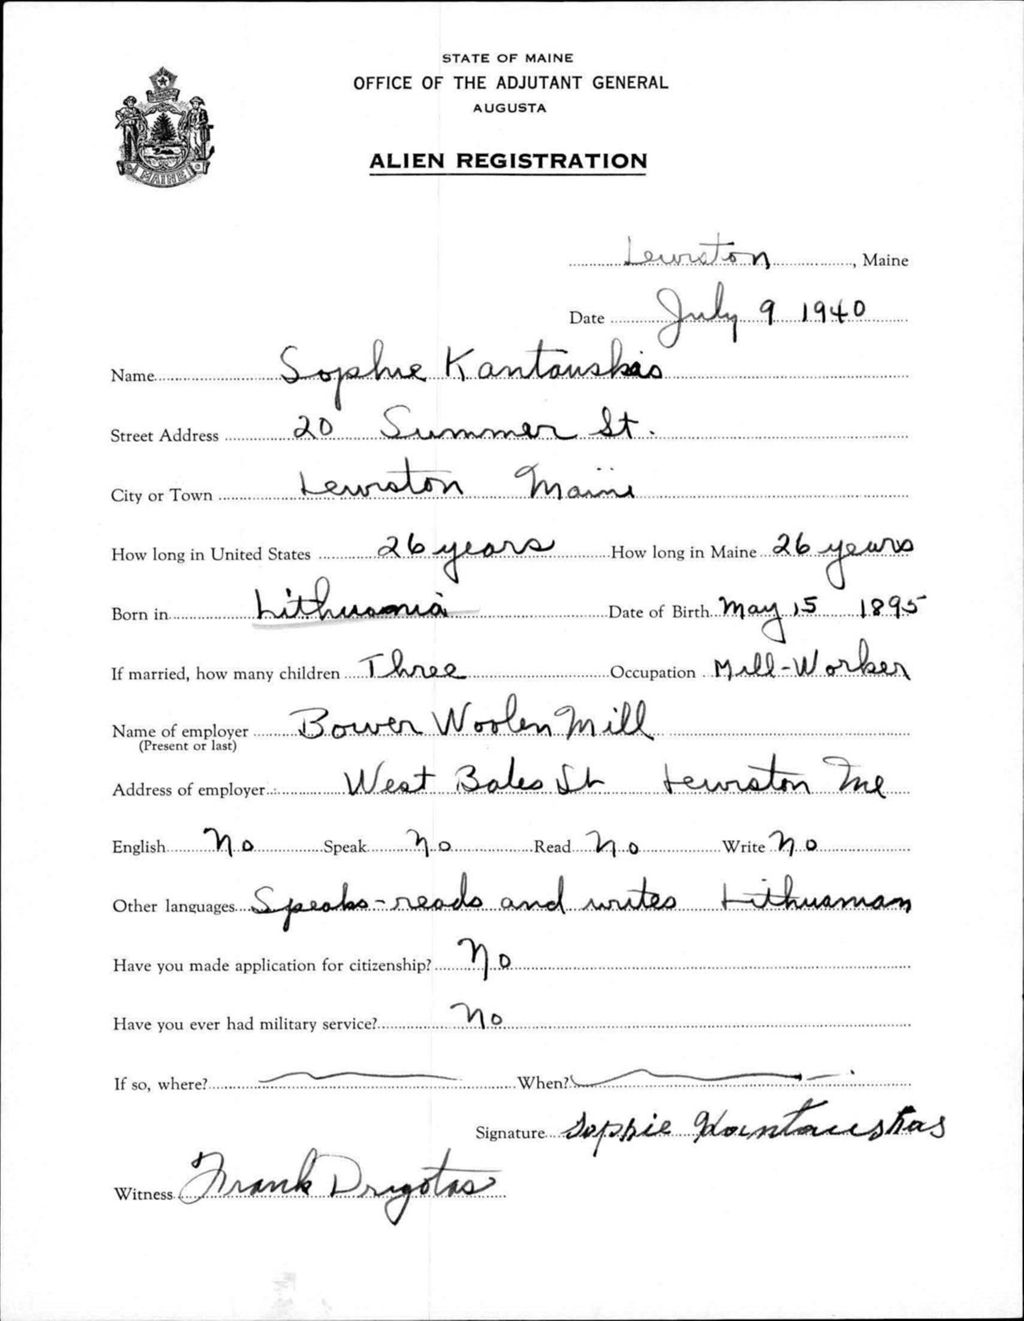 STATE OF MAINE
OFFICE OF THE ADJUTANT GENERAL
AUGUSTA
MAINE
ALIEN REGISTRATION
Lewiston, Maine
Date July 9 1940
Name Sophie Kantauskas
Street Address 20 Summer St.
City or Town Lewiston Maine
How long in United States 26 years How long in Maine 26 years
Born in Lithuania Date of Birth May 15 1895
If married, how many children Three Occupation Mill-Worker
Name of employer Bower Woolen Mill
(Present or last)
Address of employer West Bates St Lewiston Me
English No Speak No Read No Write No
Other languages Speaks-reads and writes Lithuanian
Have you made application for citizenship? No
Have you ever had military service? No
If so, where? When?
Signature Sophie Kantauskas
Witness Frank Drigotas